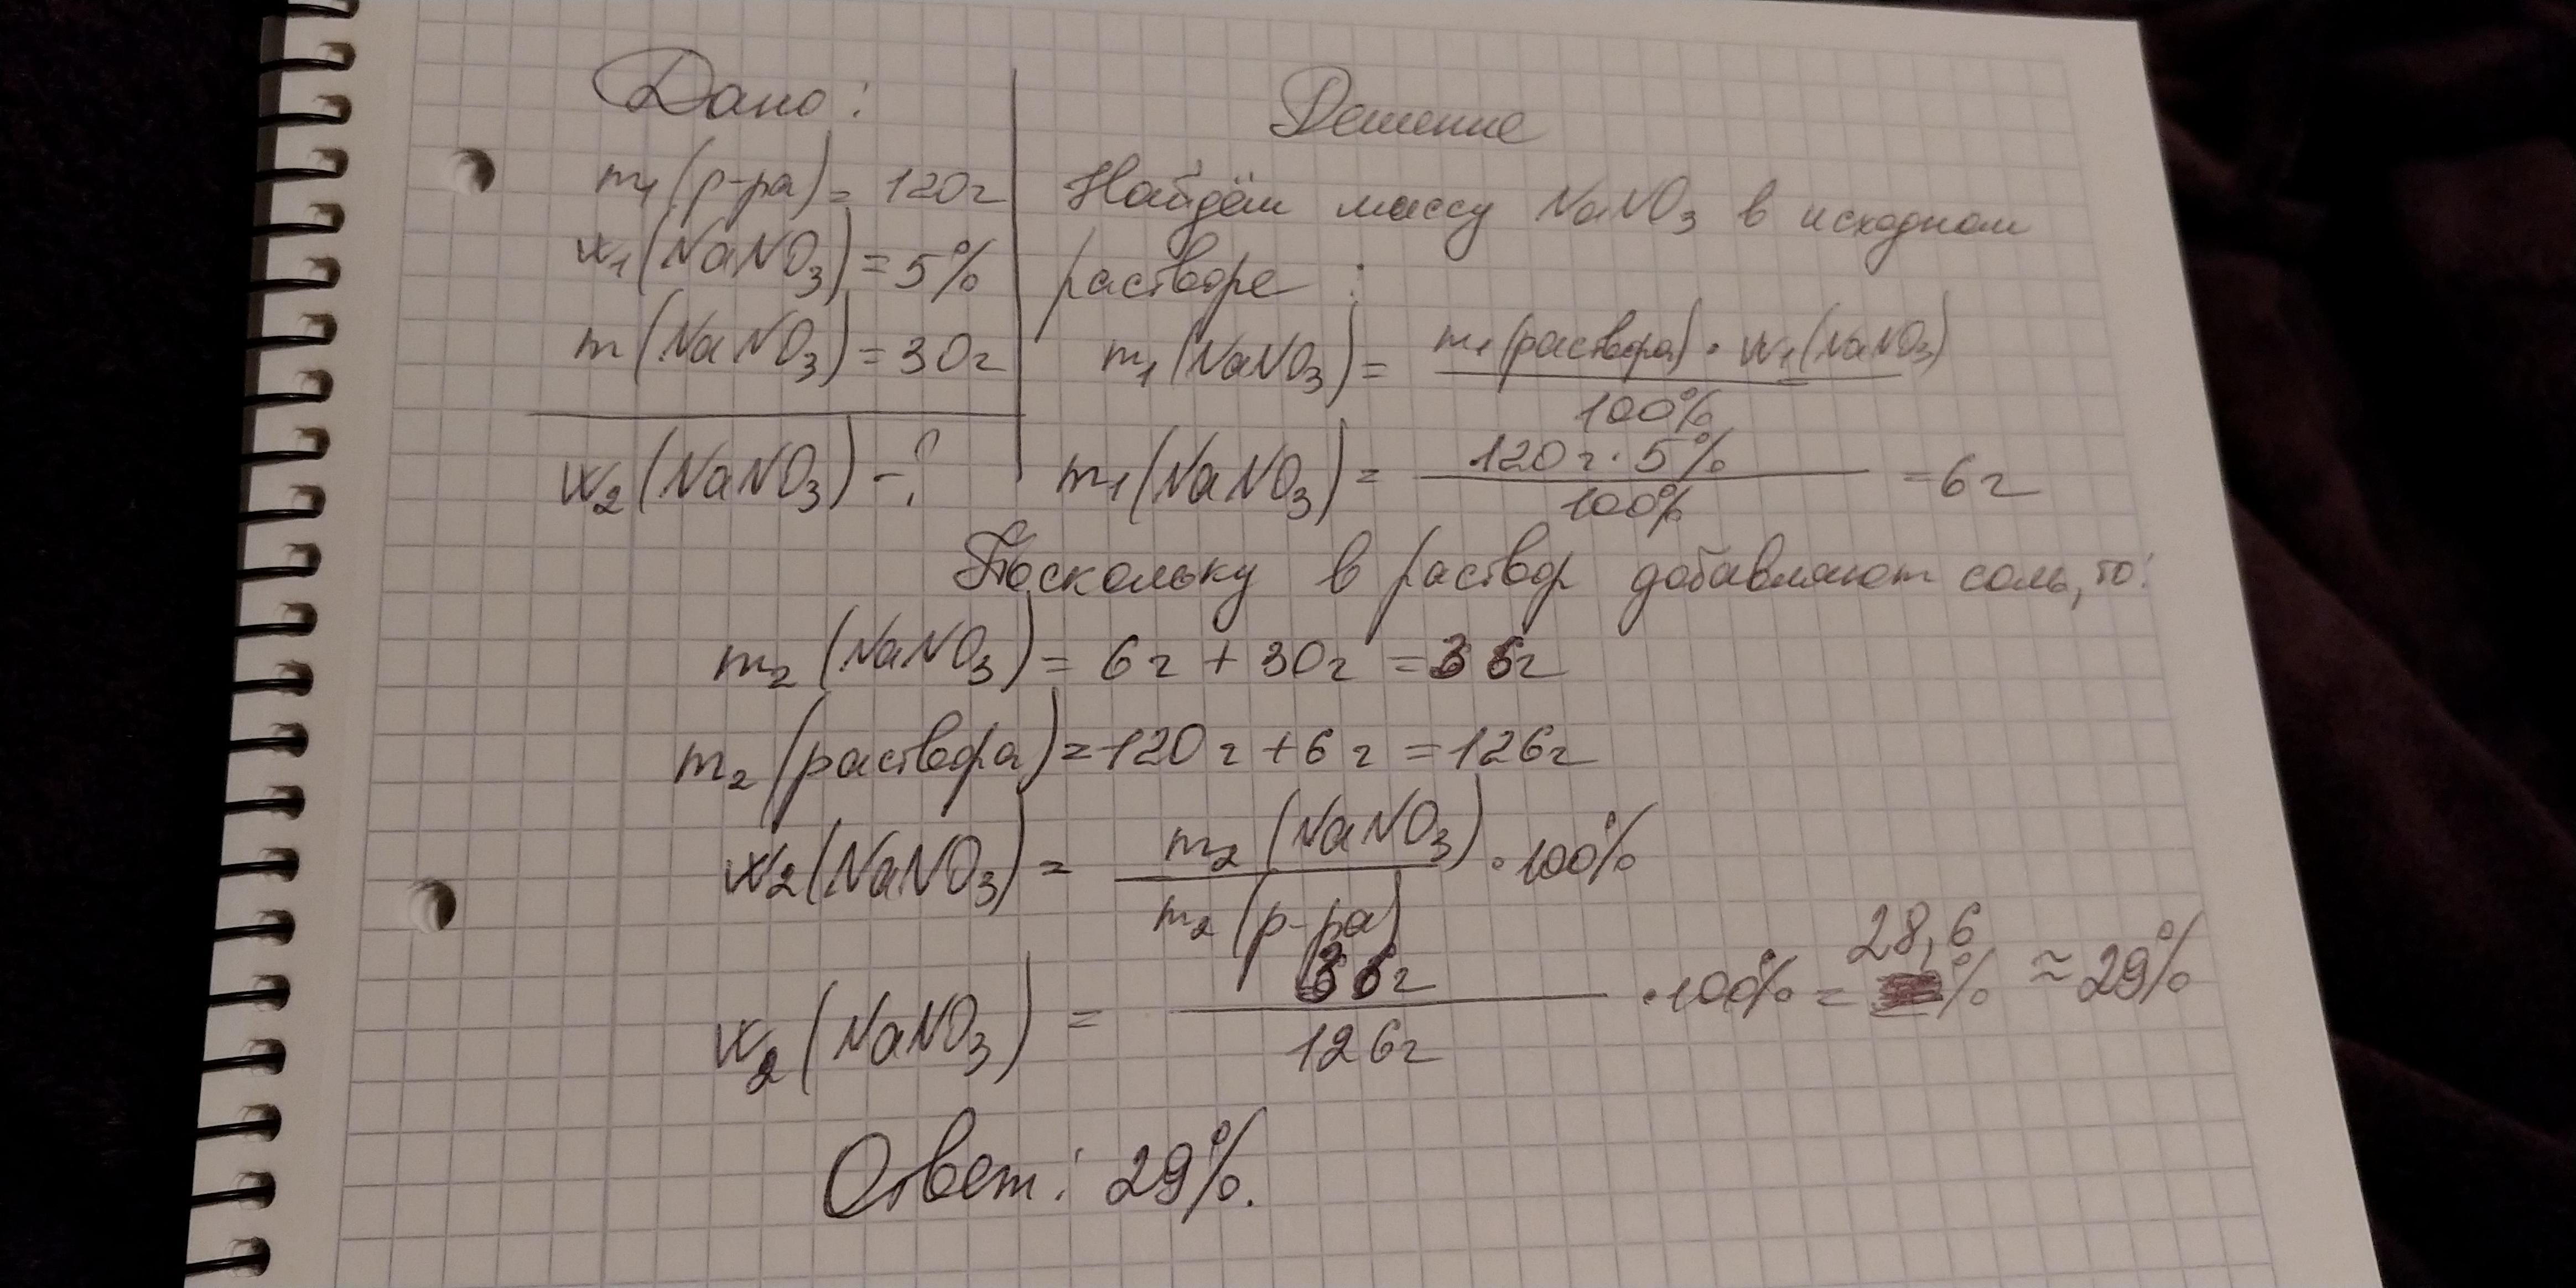 Дано:
m₁(р-ра) = 120г
w₁(NaNO₃) = 5%
m(NaNO₃) = 30г
w₂(NaNO₃) - ?
Решение
Найдём массу NaNO₃ в исходном
растворе :
m₁(NaNO₃) = m₁(раствора) · w₁(NaNO₃)
100%
m₁(NaNO₃) = 120г · 5% = 6г
100%
Поскольку в раствор добавляют соль, то:
m₂(NaNO₃) = 6г + 30г = 36г
m₂(раствора) = 120г + 6г = 126г
w₂(NaNO₃) = m₂(NaNO₃) · 100%
m₂(р-ра)
w₂(NaNO₃) = 36г · 100% = 28,6 % ≈ 29%
126г
Ответ: 29%.